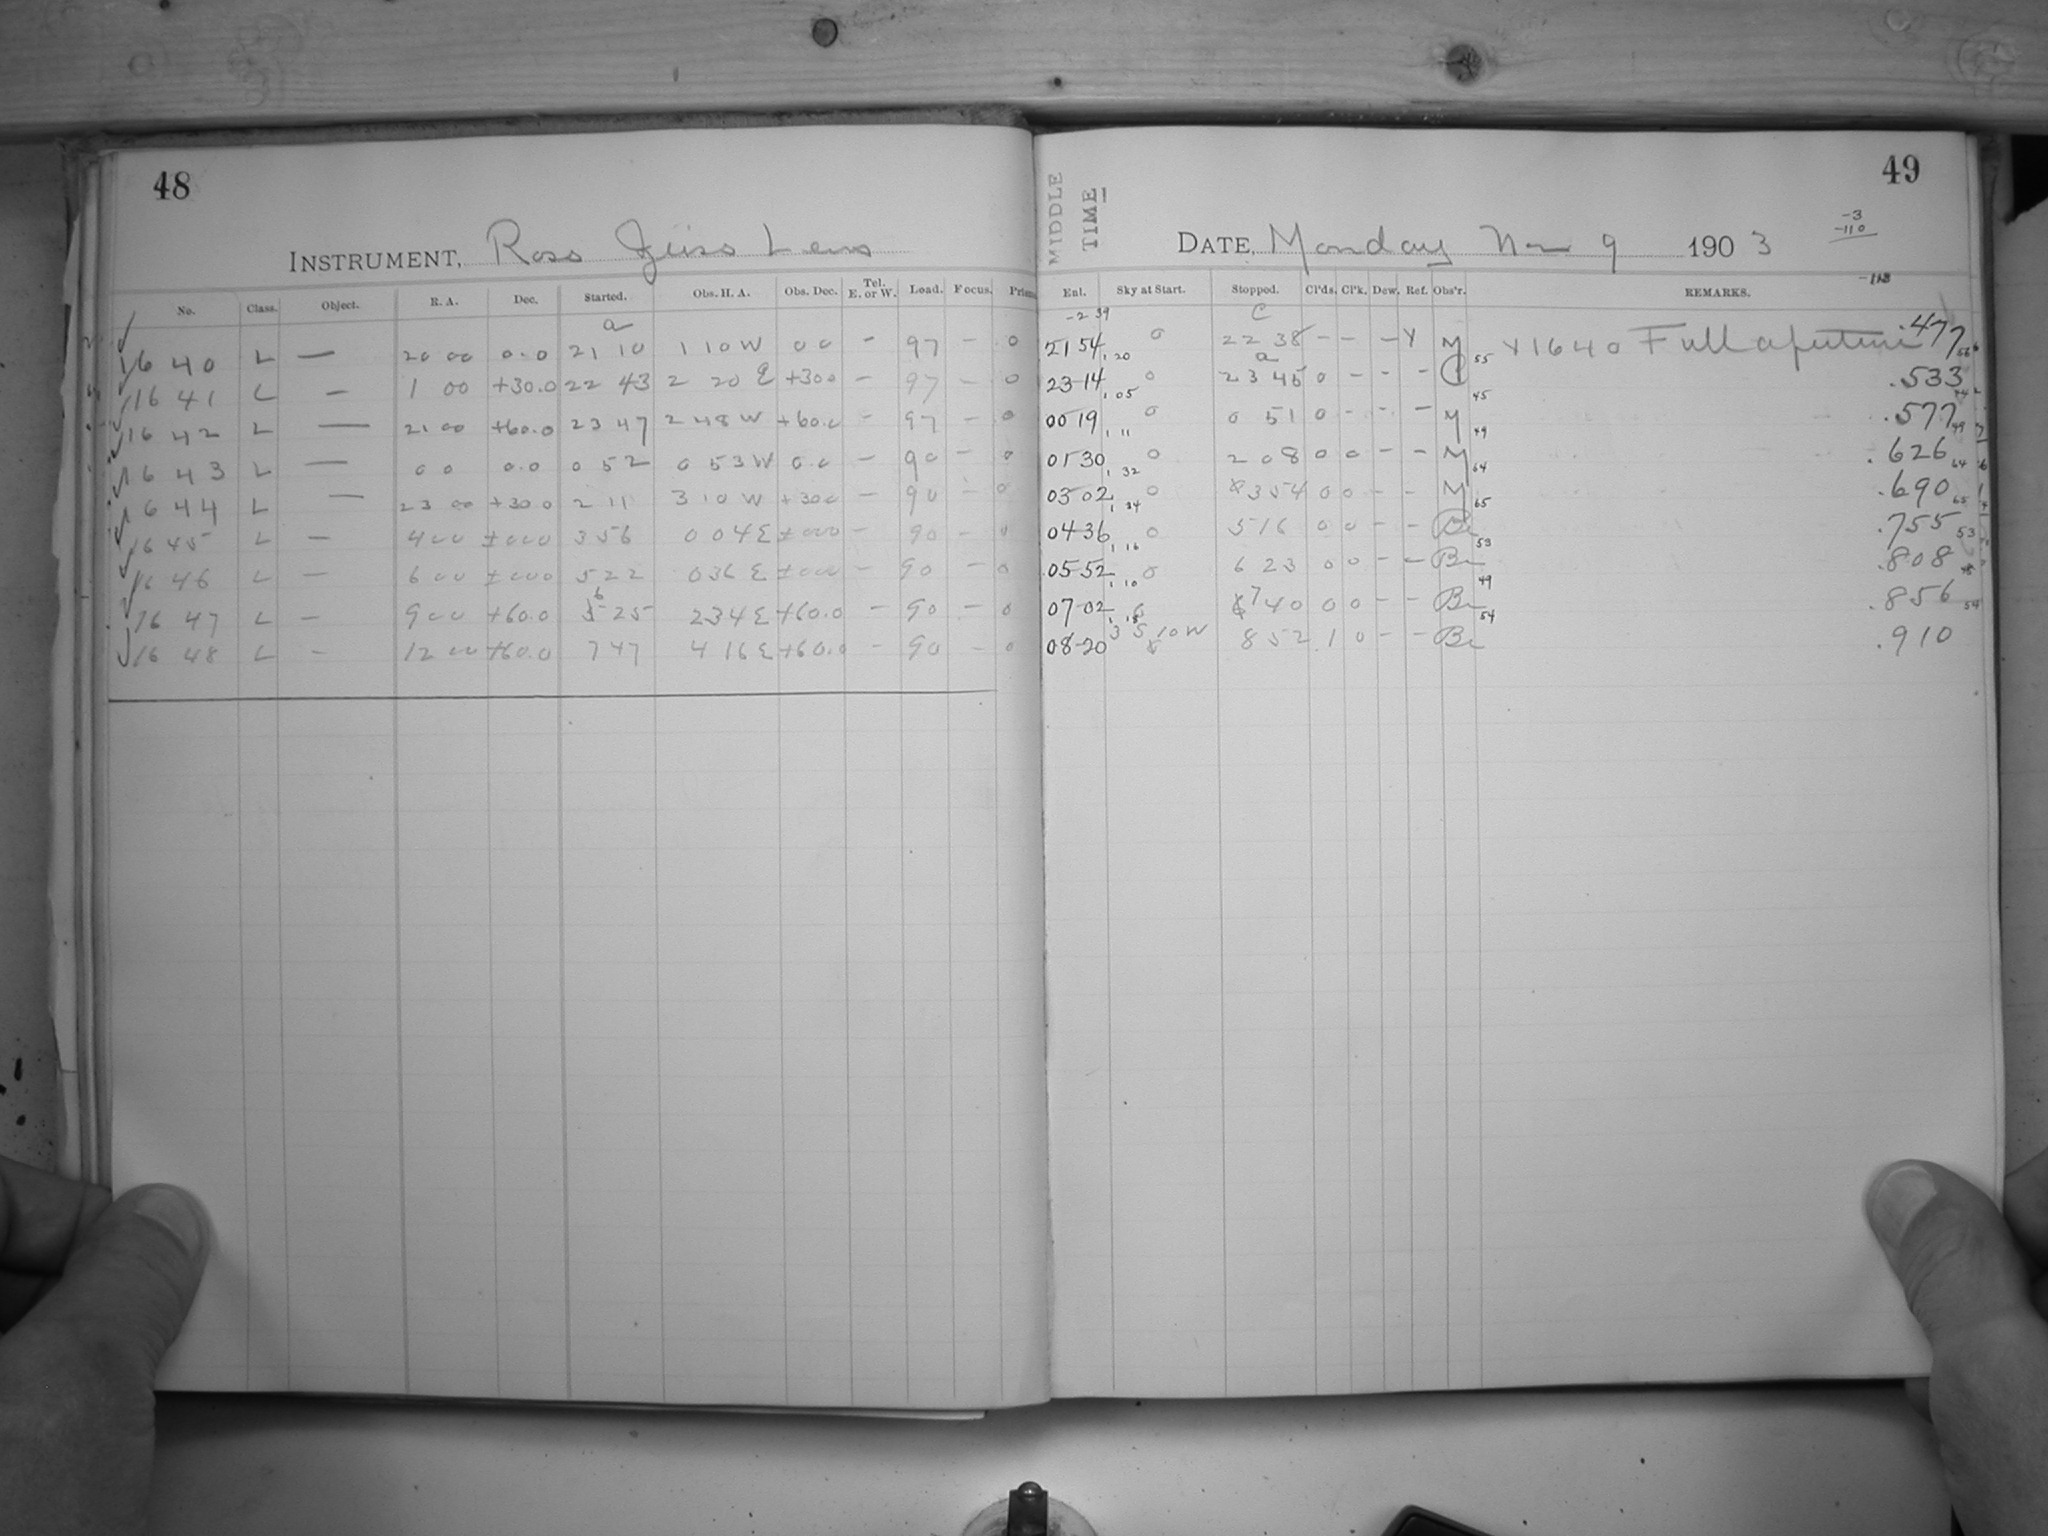 48
INSTRUMENT, Ross Zeiss Lens
No. Class. Object. R. A. Dec. Started. Obs. H. A. Obs. Dec. Tel. E. or W. Load. Focus. Prism
a
1640 L — 20 00 0.0 21 10 1 10 W 0 0 — 97 — 0
1641 L — 1 00 +30.0 22 43 2 20 E +30 0 — 97 — 0
1642 L — 21 00 +60.0 23 47 2 48 W +60.0 — 97 — 0
1643 L — 0 0 0.0 0 52 0 53 W 0.0 — 90 — 0
1644 L — 23 00 +30 0 2 11 3 10 W +30 0 — 90 — 0
1645 L — 4 00 ±000 3 56 0 04 E ±000 — 90 — 0
1646 L — 6 00 ±000 5 22 0 36 E ±000 — 90 — 0
1647 L — 9 00 +60.0 6 25 2 34 E +60.0 — 90 — 0
1648 L — 12 00 +60.0 7 47 4 16 E +60.0 — 90 — 0
49
MIDDLE TIME
DATE, Monday Nov 9 1903
-3
-110
-113
Enl. Sky at Start. Stopped. Cl'ds. Cl'k. Dew. Ref. Obs'r. REMARKS.
-2 39 C
21 54 0 22 38 — — — Y M Y1640 Full aperture .477
1 20 a 55
23 14 0 23 45 0 — — — .533
1 05 45
00 19 0 0 51 0 — — — M .577
1 11 49
01 30 0 2 08 0 0 — — M .626
1 32 64
03 02 0 3 54 0 0 — — M .690
1 34 65
04 36 0 5 16 0 0 — — Be .755
1 16 53
05 52 0 6 23 0 0 — — Be .808
1 10 49
07 02 7 40 0 0 — — Be .856
1 18 54
08 20 3 S 10 W 8 52 1 0 — — Be .910